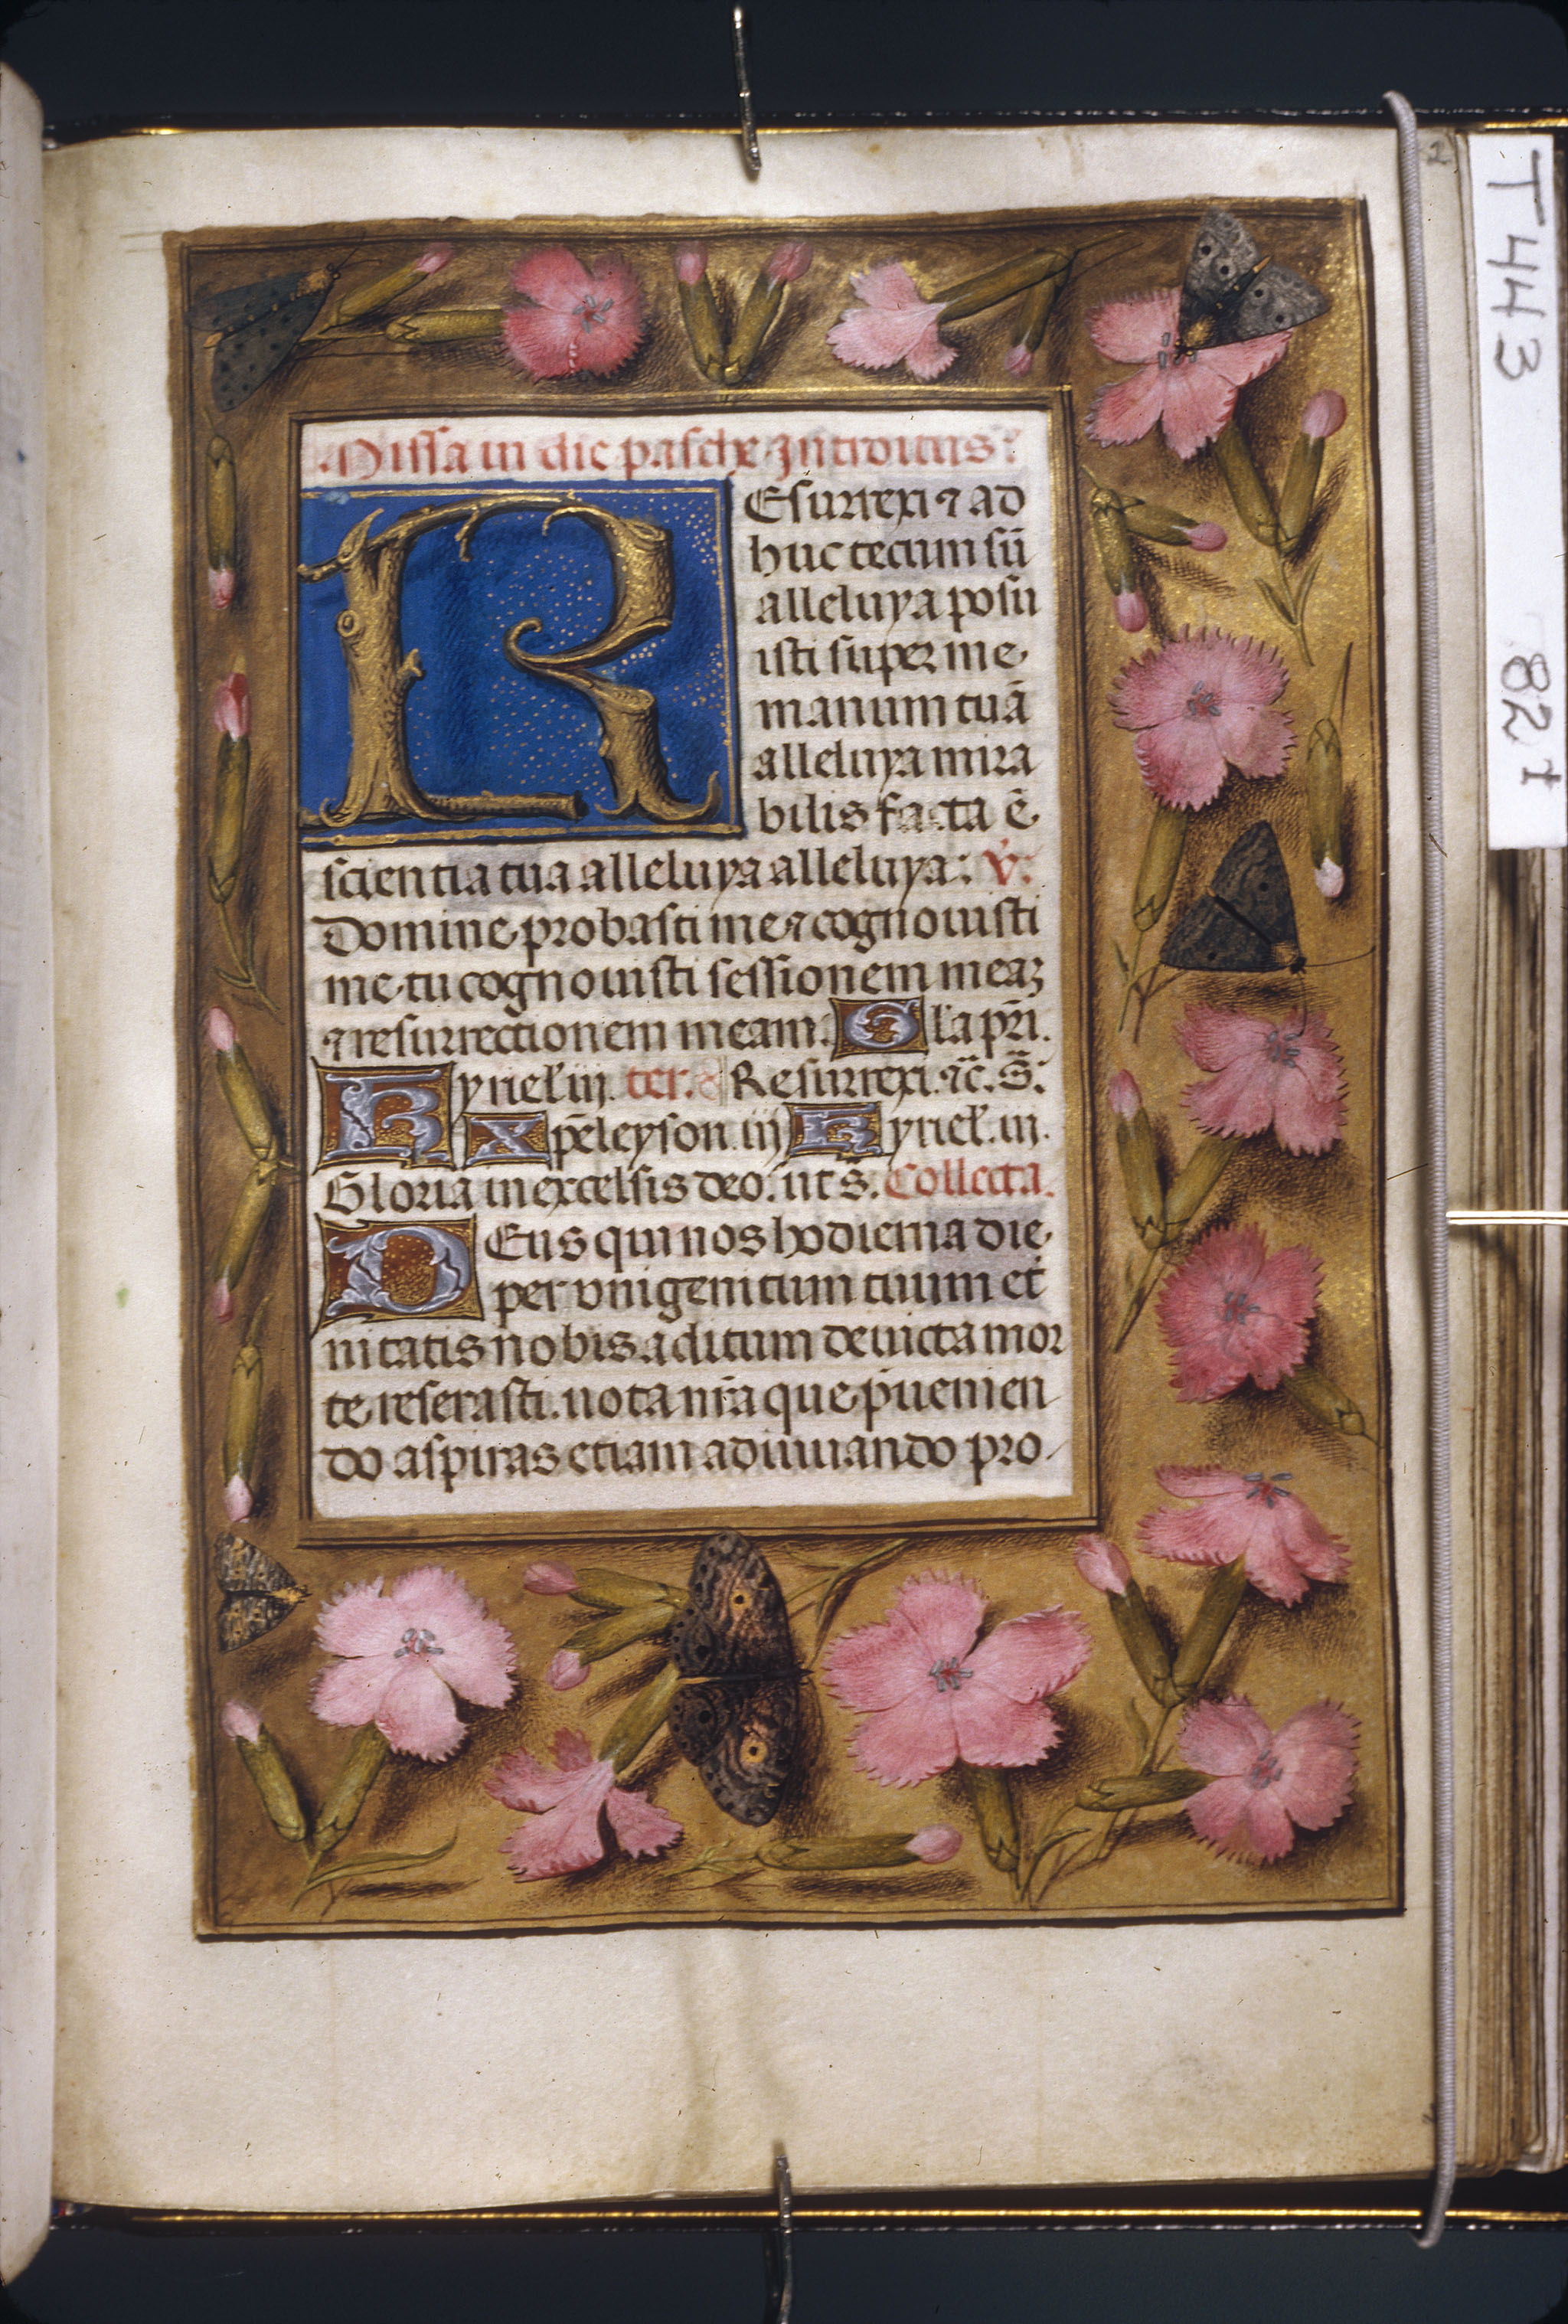 Missa in die pasche Introitus
REsurrexi ⁊ ad
huc tecum sū
alleluya posu
isti super me
manum tuā
alleluya mira
bilis facta ē
scientia tua alleluya alleluya: v̇.
Domine probasti me ⁊ cognouisti
me tu cognouisti sessionem meaꝫ
⁊ resurrectionem meam. Gl̄a pr̄i.
Kyriel̄ iij. ter. Resurrexi. ⁊c̄. S̄.
Xp̄eleyson iij Kyriel̄. iij.
Gloria in excelsis deo. ut s̄. Collecta.
DEus qui nos hodierna die
per vnigenitum tuum et
nitatis nobis aditum deuicta mor
te reserasti. uota nr̄a que p̄uenien
do aspiras etiam adiuuando pro
2
T 443
827